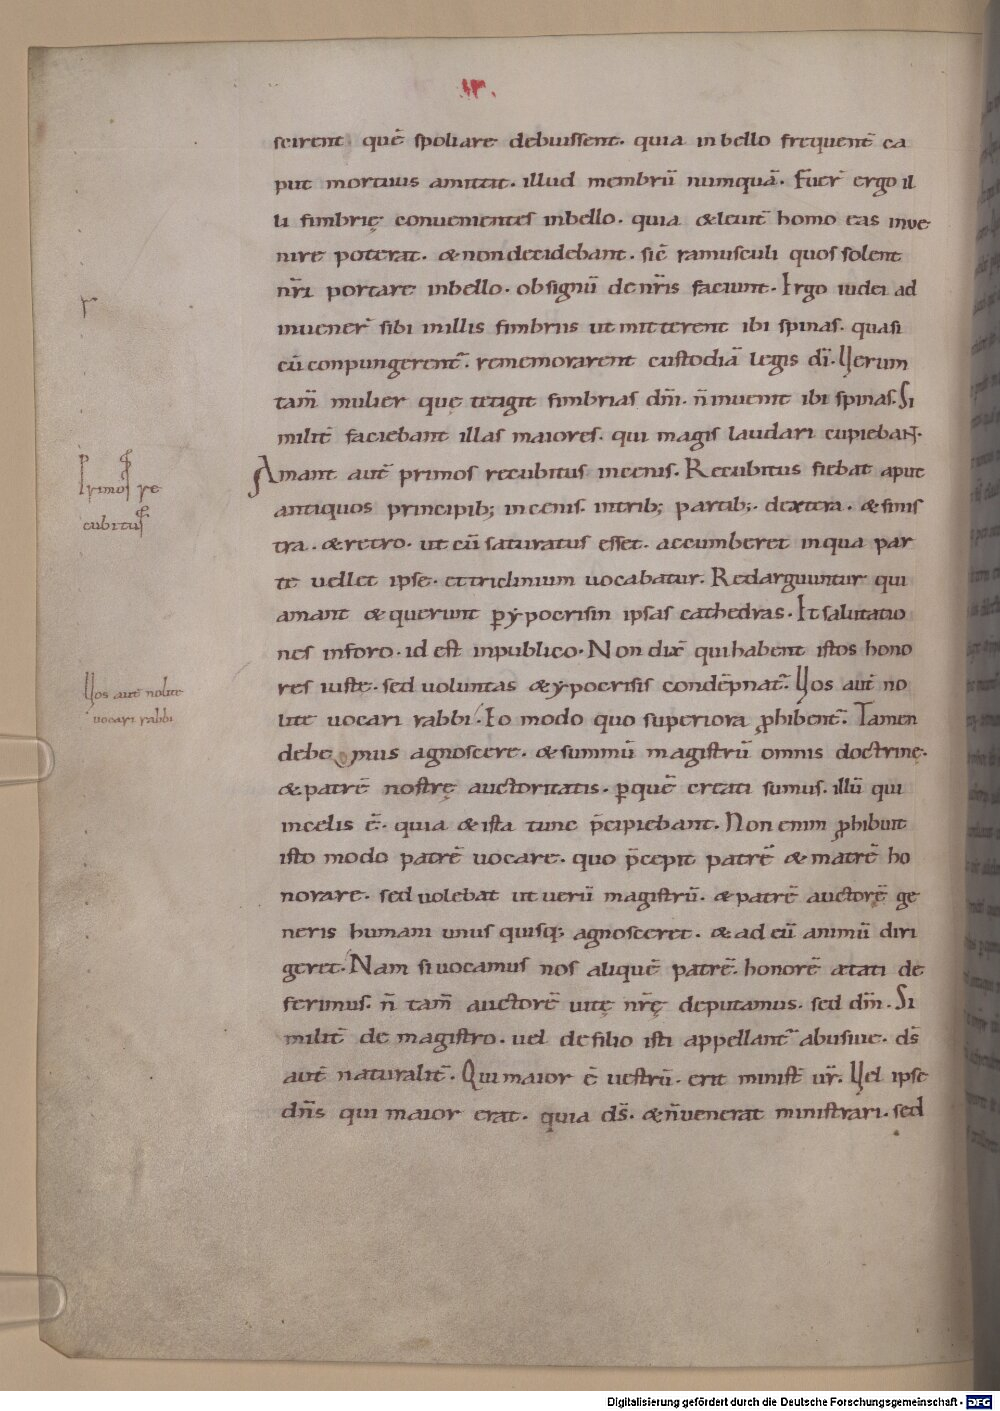 scirent. quē spoliare debuissent. quia in bello frequent̄ ca
put mortuus amittit. illud membrū numquā. Fuer̄ ergo il
li fimbrię conuenientes inbello. quia &leuit̄ homo eas inve
nire poterat. &non decidebant. sic̄ ramusculi quos solent
nr̄i portare inbello. ob signū de nr̄is faciunt. Ergo iudei ad
inuener̄ sibi in illis fimbriis ut mitterent ibi spinas. quasi
cū conpungerent̄. rememorarent custodiā legis dī. Uerum
tam̄ mulier quę tetigit fimbrias dn̄i. n̄ inuenit ibi spinas. Si
milit̄ faciebant illas maiores. qui magis laudari cupiebant.
Amant aut̄ primos recubitus in cenis. Recubitus fiebat aput
antiquos principib; in cenis. in trib; partib;. dextera. & sinis
tra. & retro. ut cū saturatus esset. accumberet in qua par
te uellet ipse. et triclinium uocabatur. Redarguuntur qui
amant & querunt p̱ ypocrisin ipsas cathedras. Et salutatio
nes in foro. id est in publico. Non dix̄ qui habent istos hono
res iuste. sed uoluntas & ypocrisis condēpnat̄. Uos aut̄ no
lite uocari rabbi. Eo modo quo superiora ꝓhibent̄. Tamen
debe mus agnoscere. & summū magistrū omnis doctrinę.
& patrē nostrę auctoritatis. ꝑ quē creati sumus. illū qui
in celis ē. quia & ista tunc p̄cipiebant. Non enim ꝓhibuit
isto modo patrē uocare. quo p̄cepit patrē & matrē ho
norare. sed uolebat ut uerū magistrū. & patrē auctorē ge
neris humani unus quisq; agnosceret. & ad eū animū diri
geret. Nam si uocamus nos aliquē patrē. honorē ætati de
ferimus. n̄ tam̄ auctorē uitę nr̄ę deputamus. sed dm̄. Si
milit̄ de magistro. uel de filio isti appellant̄ abusiue. ds̄
aut̄ naturalit̄. Qui maior ē uestrū. erit minist̄ ur̄. Uel ipse
dn̄s qui maior erat. quia ds̄. & n̄ venerat ministrari. sed
r
Primos re
cubitus
Uos aut̄ nolite
uocari rabbi
Digitalisierung gefördert durch die Deutsche Forschungsgemeinschaft - DFG